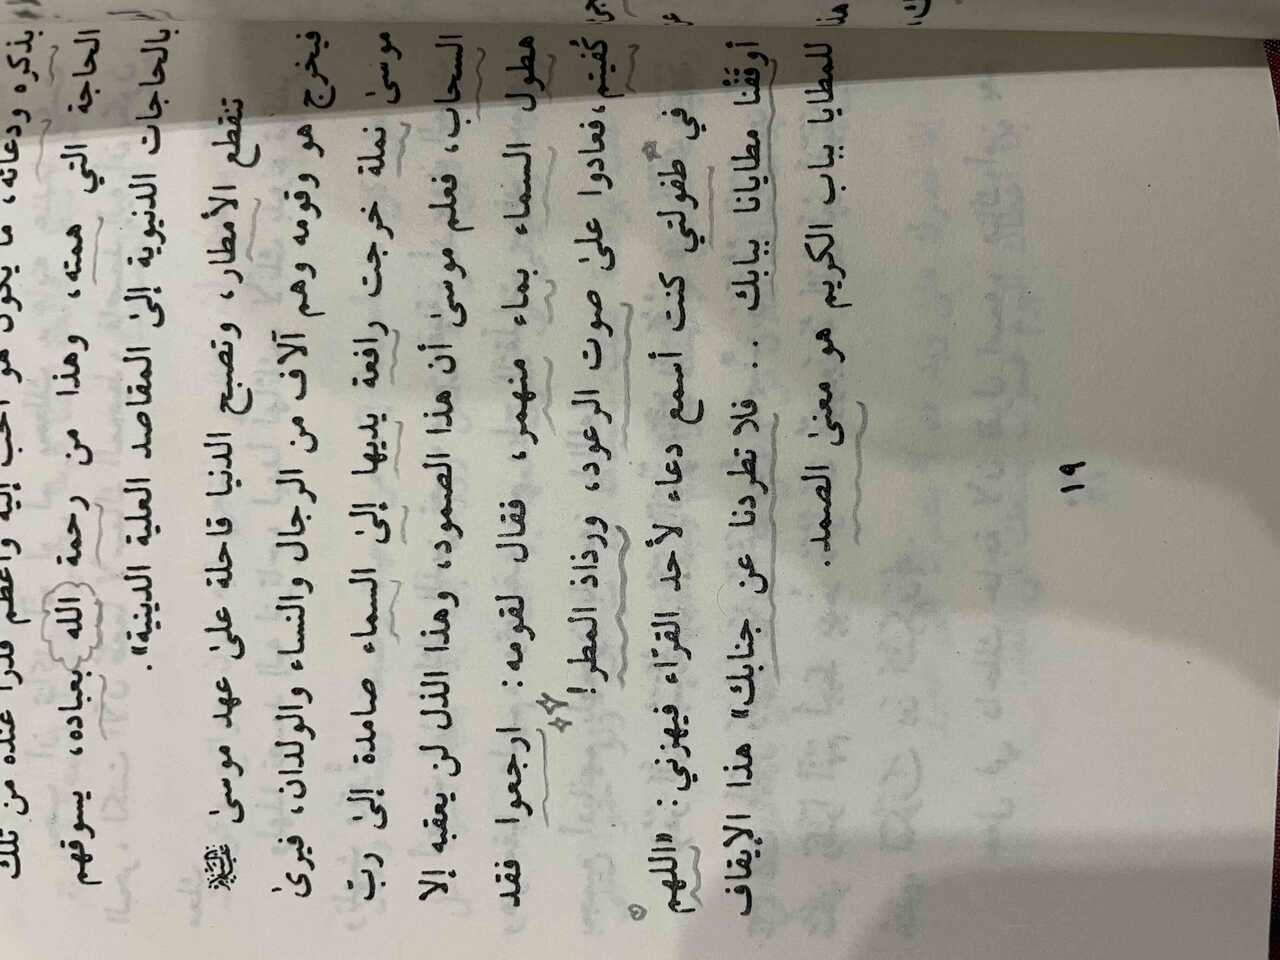 بذكره ودعائه، ما يكون هو أحب إليه وأعظم قدرا عنده من تلك
الحاجة التي همته، وهذا من رحمة الله بعباده، يسوقهم
بالحاجات الدنيوية إلى المقاصد العلية الدينية».
تنقطع الأمطار، وتصبح الدنيا قاحلة على عهد موسى ﷺ
فيخرج هو وقومه وهم آلاف من الرجال والنساء والولدان، فيرى
موسى نملة خرجت رافعة يديها إلى السماء صامدة إلى ربّ
السحاب، فعلم موسى أن هذا الصمود، وهذا الذل لن يعقبه إلا
هطول السماء بماء منهمر، فقال لقومه: ارجعوا فقد
كُفيتم، فعادوا على صوت الرعود، ورذاذ المطر!
في طفولتي كنت أسمع دعاء لأحد القرّاء فيهزني: «اللهم
أوقفْنا مطايانا ببابك .. فلا تطردنا عن جنابك» هذا الإيقاف
للمطايا بباب الكريم هو معنى الصمد.
١٩